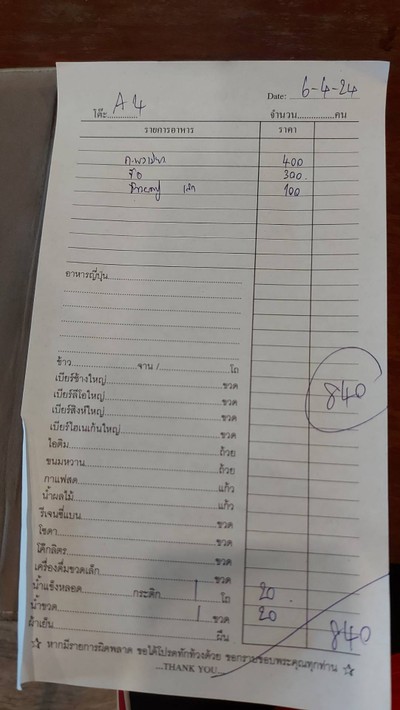 Date: 6-4-24
โต๊ะ............A4 จำนวน................คน
รายการอาหาร ราคา
400
300
100
อาหารญี่ปุ่น
ข้าว จาน / โถ
เบียร์ช้างใหญ่ ขวด
เบียร์ลีโอใหญ่ ขวด
เบียร์สิงห์ใหญ่ ขวด
เบียร์ไฮเนเก้นใหญ่ ขวด
ไอติม ถ้วย
ขนมหวาน ถ้วย
กาแฟสด แก้ว
น้ำผลไม้ แก้ว
รีเจนซี่แบน ขวด
โซดา ขวด
โค๊กลิตร ขวด
เครื่องดื่มขวดเล็ก ขวด
น้ำแข็งหลอด กระติก 1 โถ 20
น้ำขวด 1 ขวด 20
ผ้าเย็น ผืน 840
840
☆ หากมีรายการผิดพลาด ขอได้โปรดทักท้วงด้วย ขอกราบขอบพระคุณทุกท่าน ☆
...THANK YOU...